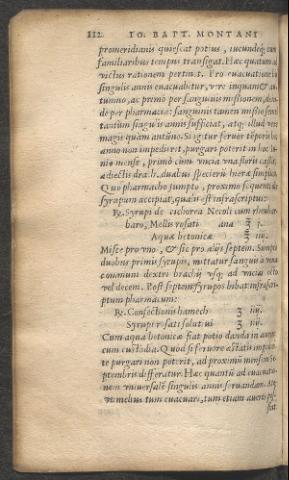 112. IO. BAPT. MONTANI
promeridianis quiescat potius, iucundeq́; cum
familiaribus tempus transigat. Hæc quatum ad
victus rationem pertinet. Pro euacuatione in
singulis annis euacuabitur, vere inquam & au-
tumno, ac primò per sanguinis missionem, dein-
dè per pharmacia: sanguinis tamen missio semel
tantùm singulis annis sufficiat, atq; illud vere
magis quàm autūno. Si igitur feruor tēporis hoc
anno non impedierit, purgari poterit in hoc Iu-
nio mense, primò cùm vncia vna floris cassiæ,
adiectis drach. duabus specierū hieræ simplicis.
Quo pharmacho sumpto, proximo sequenti die
syrupum accipiat, qualis est infrascriptus:
℞. Syrupi de cichorea Nicoli cum rheubar-
baro, Mellis rosati ana ℥ j.
Aquæ betonicæ ℥ iij.
Misce pro vno, & sic pro alijs septem. Sumptis
duobus primis syrupis, mittatur sanguis à vena
communi dextri brachij vsq; ad vncias octo
vel decem. Post septem syrupos bibat infrascri-
ptum pharmacum:
℞. Confectionis hamech ʒ iij.
Syrupi rosati solutiui ℥ iij.
Cum aqua betonicæ fiat potio danda in aurora
cum custodia. Quod si feruore æstatis impedien-
te purgari non poterit, ad proximū mensem Se-
ptembris differatur. Hæc quantū ad euacuatio-
nem vniuersalē singulis annis seruandam.
vt melius tum euacuari, tum etiam auerti